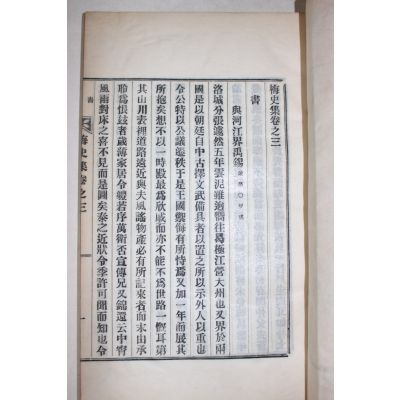 梅史集卷之三
書
與河江界禹錫
洛城分張遽然五年雲泥雖逈嚮往尋極江營大州也又界於兩
國是以朝廷自中古擇文武備具者以置之所以示外人以重也
令公特以公議選秩于是王國禦侮有所恃焉又加一年而展其
所抱矣想不以一時殿最爲欣戚而亦不能不爲世路一慨耳第
其山川表裡道路遠近與夫風謠物產必有所記來者而末由承
聆爲恨玆者歲薄家居令軆若序萬衛否宣傳兄又錦還云中宵
風雨對床之喜不見而是圖矣秦之近狀令季許可聞而知也令
書
梅史集卷之三
一